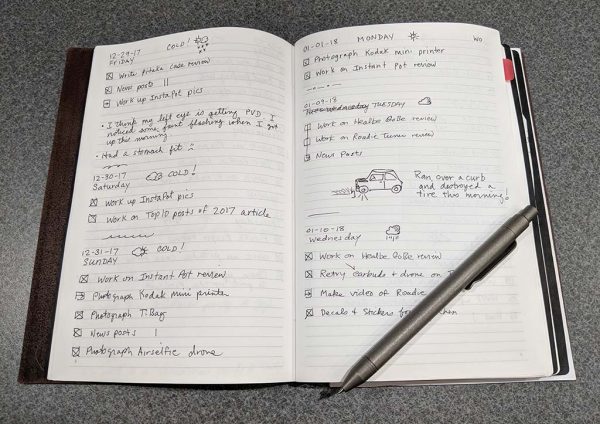 12-29-17 COLD!
FRIDAY
Write Pitaka case review
News posts ||
Work up InstaPot pics
• I think my left eye is getting PVD. I
noticed some faint flashing when I got
up this morning.
• Had a stomach fit
12-30-17 COLD!
Saturday
Work up InstaPot pics
Work on Top 10 posts of 2017 article
12-31-17 COLD!
SUNDAY
Work on Instant Pot review
Photograph Kodak mini printer
Photograph T-Bag
News posts |
Photograph Airselfie drone
01-01-18 MONDAY
Photograph Kodak mini printer
Work on Instant Pot review
01-09-18
Wednesday TUESDAY
Work on Healbe GoBe review
Work on Roadie Tuner review
News Posts
Ran over a curb
and destroyed a
tire this morning!
01-10-18
Wednesday
Work on Healbe GoBe review
Retry earbuds & drone on
Make video of Roadie
Decals & Stickers for